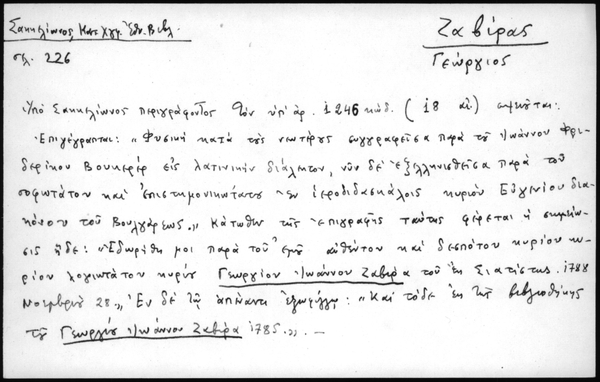 Σακκελίωνος Κατ. Χγρ. Ἐθν. Βιβλ.
σελ. 226
Ζαβίρας
Γεώργιος
Ὑπό Σακκελίωνος περιγράφοντος τόν ὑπ' ἀρ. 1246 κώδ. (18 αἰ.) σημειοῦται:
Ἐπιγέγραπται: "Φυσική κατά τούς νεωτέρους συγγραφεῖσα παρά τοῦ Ἰωάννου Φρι-
δερίκου Βουχερέρ εἰς λατινικήν διάλεκτον, νῦν δέ ἐξελληνισθεῖσα παρά τοῦ
σοφωτάτου καί ἐπιστημονικωτάτου ἐν ἱεροδιδασκάλοις κυρίου Εὐγενίου δια-
κόνου τοῦ Βουλγάρεως." Κάτωθεν τῆς ἐπιγραφῆς ταύτης φέρεται ἡ σημείω-
σις ἥδε: "Ἐδωρήθη μοι παρά τοῦ ἐμοῦ αὐθέντου καί δεσπότου κυρίου κυ-
ρίου λογιωτάτου κυρίου Γεωργίου Ἰωάννου Ζαβίρα τοῦ ἐκ Σιατίστης. 1788
Νοεμβρίου 28." Ἐν δέ τῷ ἀπέναντι ἐξωφύλλῳ: "Καί τόδε ἐκ τῆς βιβλιοθήκης
τοῦ Γεωργίου Ἰωάννου Ζαβίρα 1785.". —